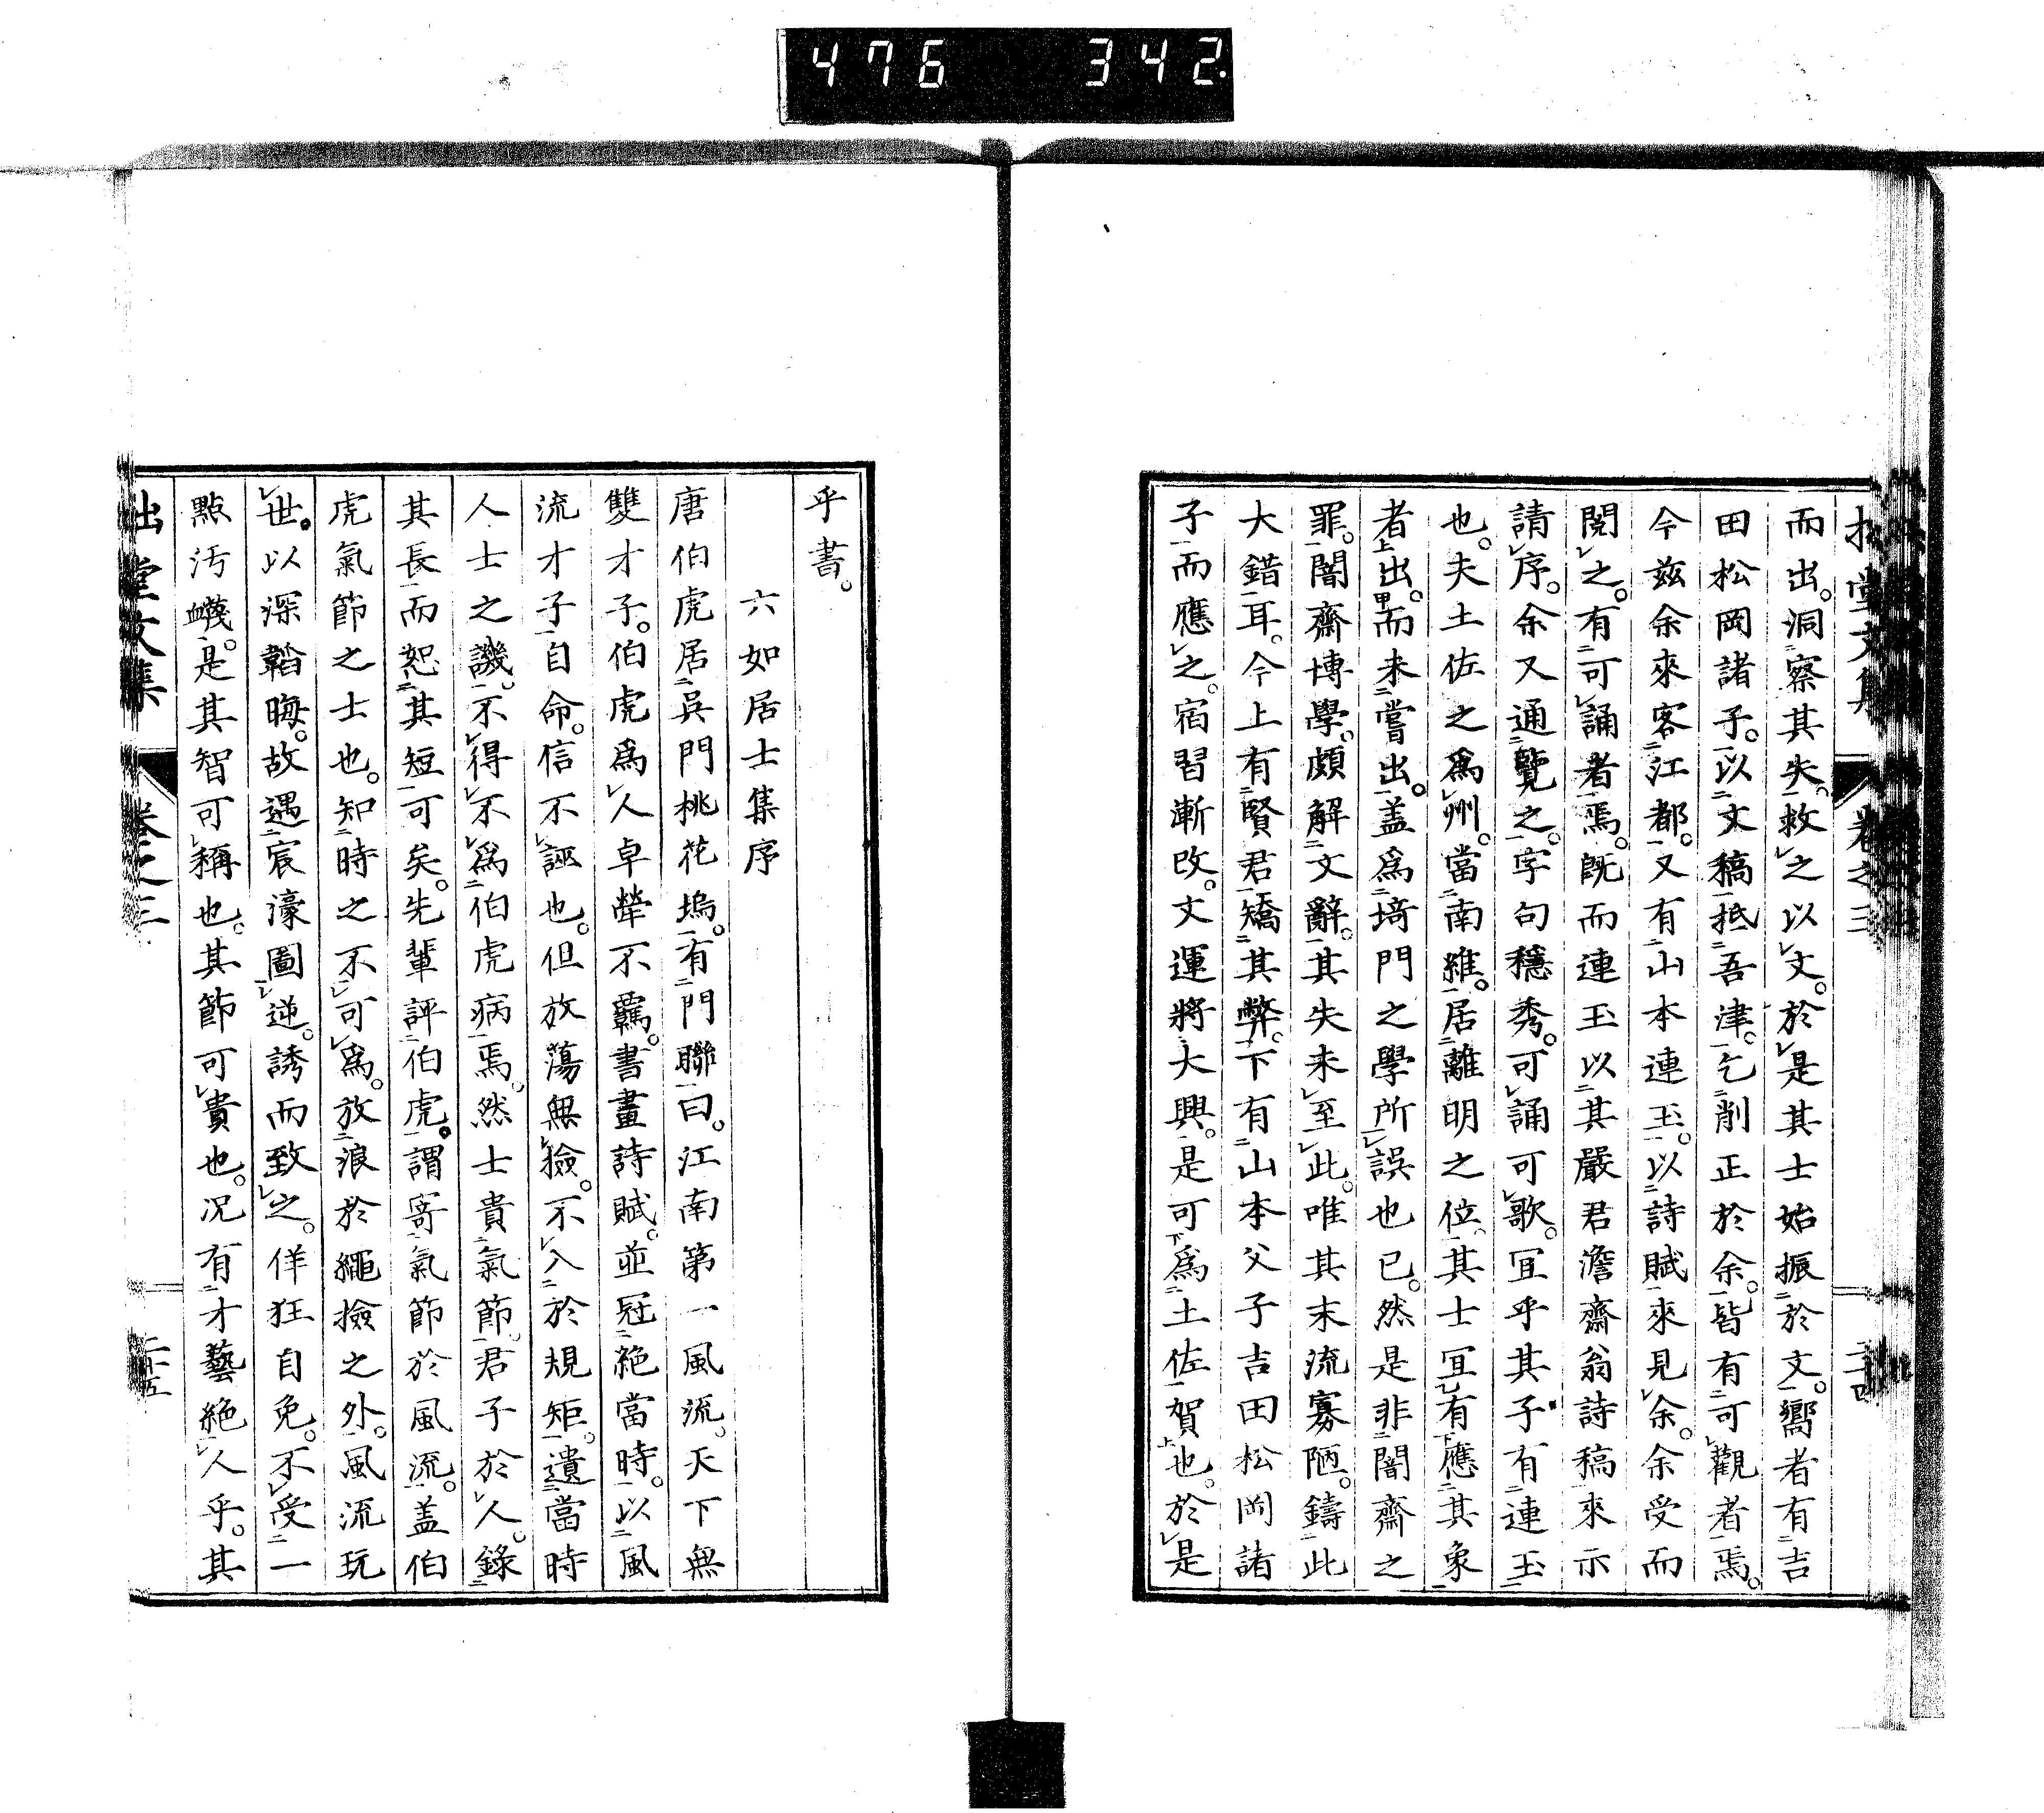 476 342.
而出。洞察其失。救之以文。於是其士始振於文。嚮者有吉
田松岡諸子。以文稿抵吾津。乞削正於余。皆有可觀者焉。
今茲余來客江都。又有山本連玉。以詩賦來見余。余受而
閱之。有可誦者焉。既而連玉以其嚴君澹齋翁詩稿來示
請序。余又通覽之。字句穩秀。可誦可歌。冝乎其子有連玉
也。夫土佐之爲州。當南維。居離明之位。其士冝有應其象
者出。而未嘗出。盖爲埼門之學所誤也已。然是非闇齋之
罪。闇齋博學。頗解文辭。其失未至此。唯其末流寡陋。鑄此
大錯耳。今上有賢君矯其弊。下有山本父子吉田松岡諸
子而應之。宿習漸改。文運將大興。是可爲土佐賀也。於是
乎書。
六如居士集序
唐伯虎居吳門桃花塢。有門聯曰。江南第一風流。天下無
雙才子。伯虎爲人卓犖不羈。書畫詩賦。並冠絕當時。以風
流才子自命。信不誣也。但放蕩無撿。不入於規矩。遺當時
人士之譏。不得不爲伯虎病焉。然士貴氣節。君子於人。錄
其長而恕其短可矣。先輩評伯虎。謂寄氣節於風流。盖伯
虎氣節之士也。知時之不可爲。放浪於繩撿之外。風流玩
世。以深韜晦。故遇宸濠圖逆。誘而致之。佯狂自免。不受一
點汚衊。是其智可稱也。其節可貴也。况有才藝絕人乎。其
堂文集 卷之三 二十五